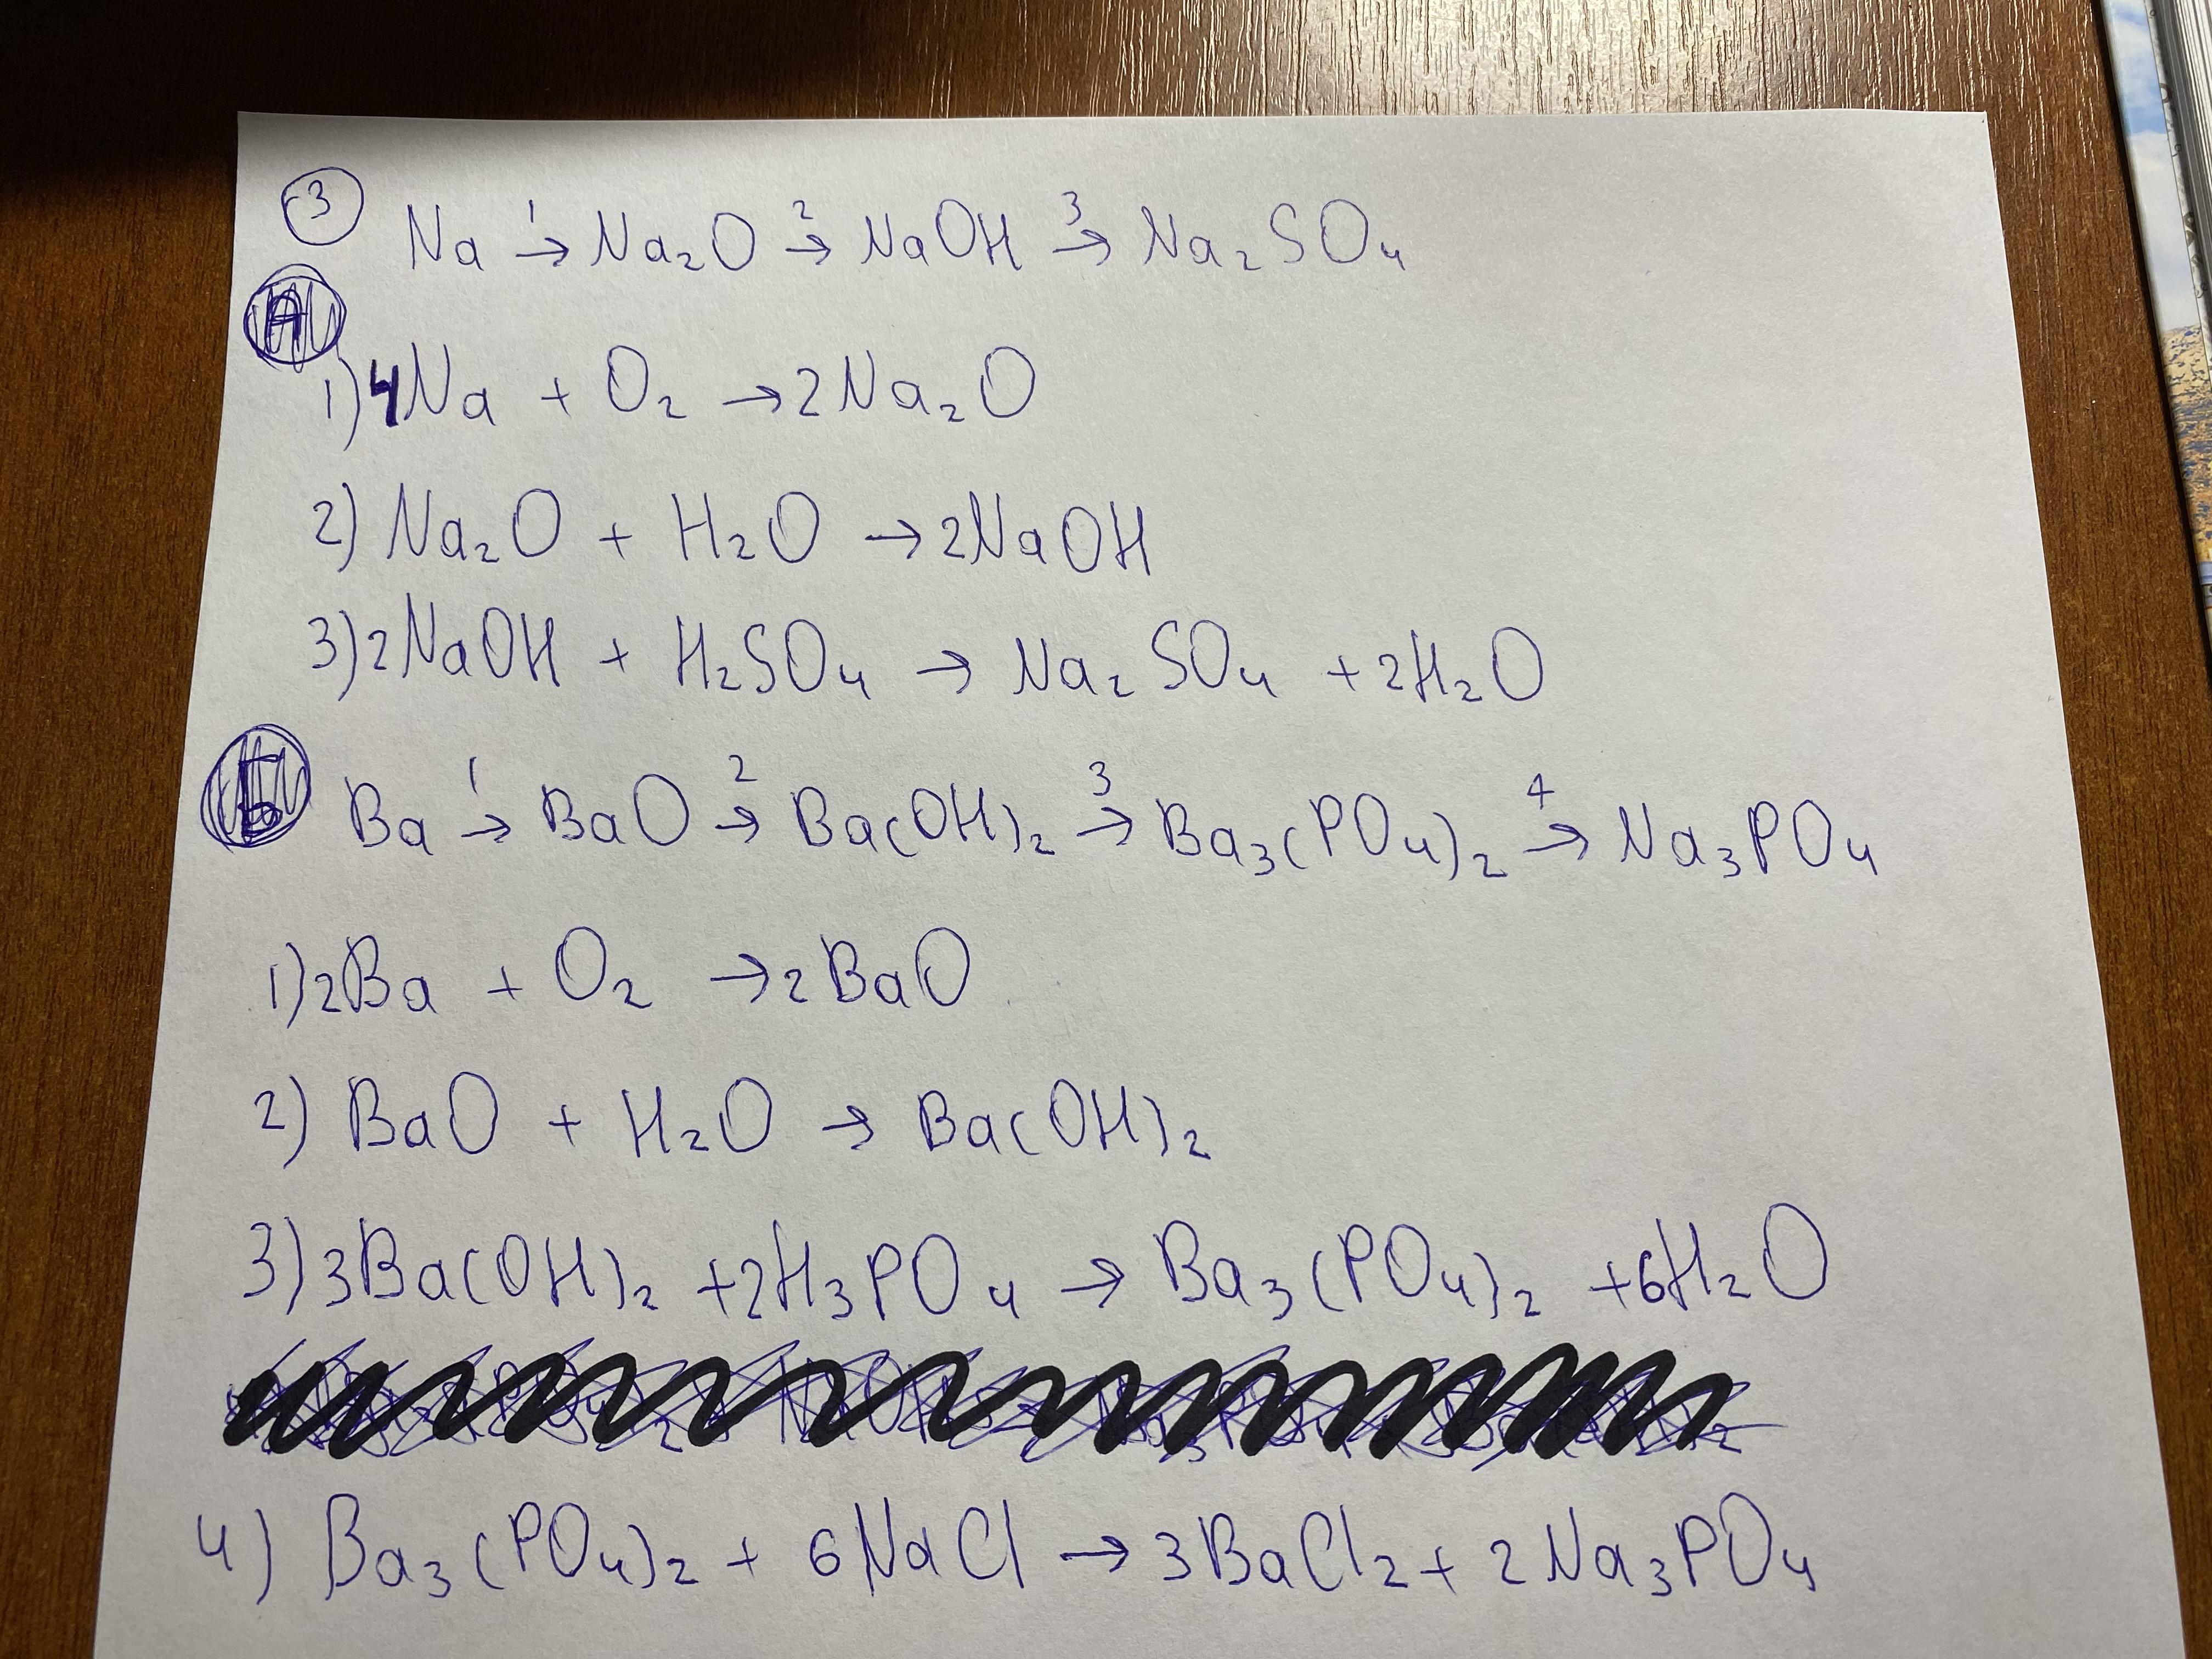 3 Na 1→ Na₂O 2→ NaOH 3→ Na₂SO₄
А
1) 4Na + O₂ → 2Na₂O
2) Na₂O + H₂O → 2NaOH
3) 2NaOH + H₂SO₄ → Na₂SO₄ + 2H₂O
Б Ba 1→ BaO 2→ Ba(OH)₂ 3→ Ba₃(PO₄)₂ 4→ Na₃PO₄
1) 2Ba + O₂ → 2BaO
2) BaO + H₂O → Ba(OH)₂
3) 3Ba(OH)₂ + 2H₃PO₄ → Ba₃(PO₄)₂ + 6H₂O
4) Ba₃(PO₄)₂ + 6NaCl → 3BaCl₂ + 2Na₃PO₄